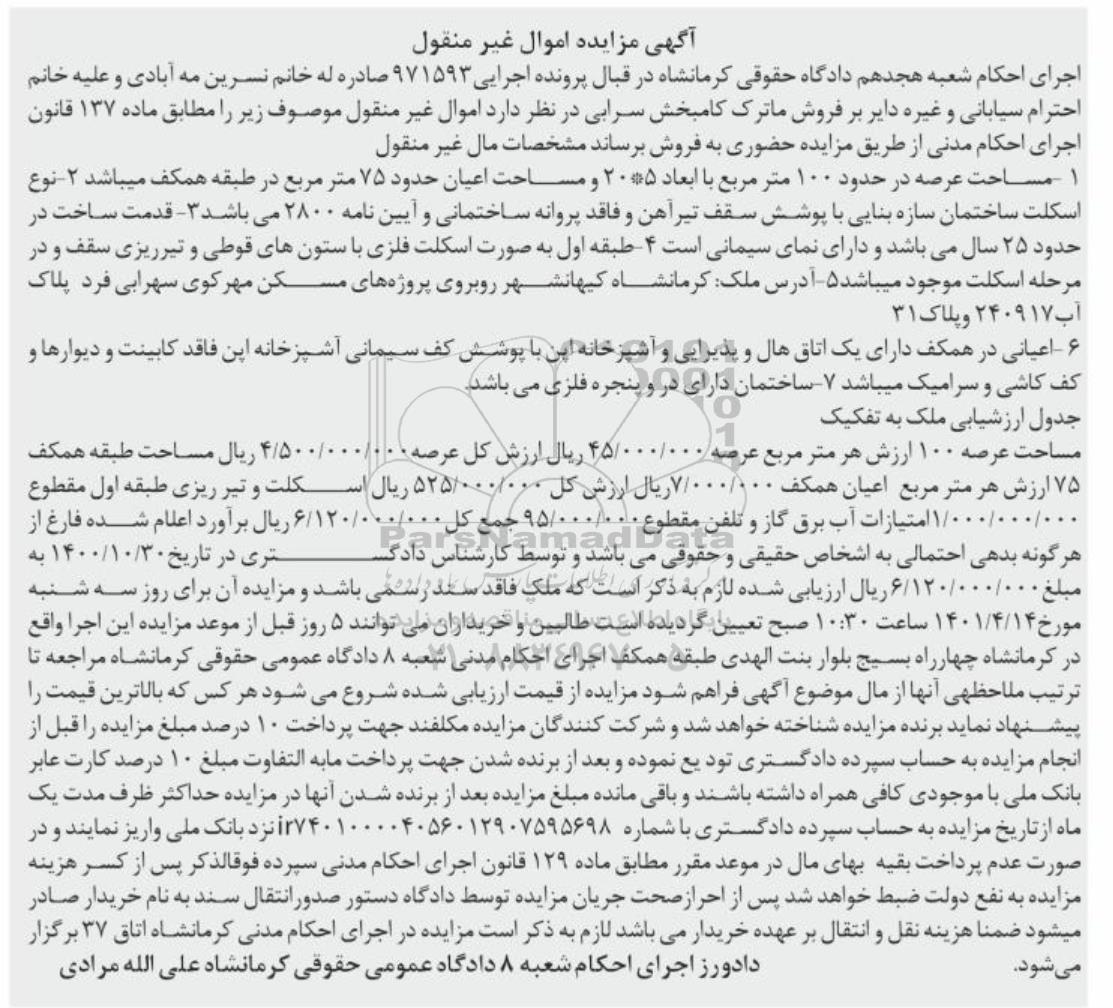 آگهی مزایده اموال غیر منقول
اجرای احکام شعبه هجدهم دادگاه حقوقی کرمانشاه در قبال پرونده اجرایی۹۷۱۵۹۳ صادره له خانم نسرین مه آبادی و علیه خانم
احترام سیابانی و غیره دایر بر فروش ماترک کامبخش سرابی در نظر دارد اموال غیر منقول موصوف زیر را مطابق ماده ۱۳۷ قانون
اجرای احکام مدنی از طریق مزایده حضوری به فروش برساند مشخصات مال غیر منقول
۱ -مساحت عرصه در حدود ۱۰۰ متر مربع با ابعاد ۵*۲۰ و مساحت اعیان حدود ۷۵ متر مربع در طبقه همکف میباشد ۲-نوع
اسکلت ساختمان سازه بنایی با پوشش سقف تیرآهن و فاقد پروانه ساختمانی و آیین نامه ۲۸۰۰ می باشد۳- قدمت ساخت در
حدود ۲۵ سال می باشد و دارای نمای سیمانی است ۴-طبقه اول به صورت اسکلت فلزی با ستون های قوطی و تیرریزی سقف و در
مرحله اسکلت موجود میباشد۵-آدرس ملک: کرمانشاه کیهانشهر روبروی پروژه‌های مسکن مهر کوی سهرابی فرد پلاک
آب۲۴۰۹۱۷ وپلاک۳۱
۶ -اعیانی در همکف دارای یک اتاق هال و پذیرایی و آشپزخانه اپن با پوشش کف سیمانی آشپزخانه اپن فاقد کابینت و دیوارها و
کف کاشی و سرامیک میباشد ۷-ساختمان دارای در و پنجره فلزی می باشد.
جدول ارزشیابی ملک به تفکیک
مساحت عرصه ۱۰۰ ارزش هر متر مربع عرصه ۴۵/۰۰۰/۰۰۰ ریال ارزش کل عرصه۴/۵۰۰/۰۰۰/۰۰۰ ریال مساحت طبقه همکف
۷۵ ارزش هر متر مربع اعیان همکف ۷/۰۰۰/۰۰۰ریال ارزش کل ۵۲۵/۰۰۰/۰۰۰ ریال اسکلت و تیر ریزی طبقه اول مقطوع
۱/۰۰۰/۰۰۰/۰۰۰امتیازات آب برق گاز و تلفن مقطوع۹۵/۰۰۰/۰۰۰ جمع کل۶/۱۲۰/۰۰۰/۰۰۰ ریال برآورد اعلام شده فارغ از
هرگونه بدهی احتمالی به اشخاص حقیقی و حقوقی می باشد و توسط کارشناس دادگستری در تاریخ۱۴۰۰/۱۰/۳۰ به
مبلغ۶/۱۲۰/۰۰۰/۰۰۰ ریال ارزیابی شده لازم به ذکر است که ملک فاقد سند رسمی باشد و مزایده آن برای روز سه شنبه
مورخ۱۴۰۱/۴/۱۴ ساعت ۱۰:۳۰ صبح تعیین گردیده است طالبین و خریداران می توانند ۵ روز قبل از موعد مزایده این اجرا واقع
در کرمانشاه چهارراه بسیج بلوار بنت الهدی طبقه همکف اجرای احکام مدنی شعبه ۸ دادگاه عمومی حقوقی کرمانشاه مراجعه تا
ترتیب ملاحظهی آنها از مال موضوع آگهی فراهم شود مزایده از قیمت ارزیابی شده شروع می شود هر کس که بالاترین قیمت را
پیشنهاد نماید برنده مزایده شناخته خواهد شد و شرکت کنندگان مزایده مکلفند جهت پرداخت ۱۰ درصد مبلغ مزایده را قبل از
انجام مزایده به حساب سپرده دادگستری تود یع نموده و بعد از برنده شدن جهت پرداخت مابه التفاوت مبلغ ۱۰ درصد کارت عابر
بانک ملی با موجودی کافی همراه داشته باشند و باقی مانده مبلغ مزایده بعد از برنده شدن آنها در مزایده حداکثر ظرف مدت یک
ماه از تاریخ مزایده به حساب سپرده دادگستری با شماره ir۷۴۰۱۰۰۰۰۴۰۵۶۰۱۲۹۰۷۵۹۵۶۹۸ نزد بانک ملی واریز نمایند و در
صورت عدم پرداخت بقیه بهای مال در موعد مقرر مطابق ماده ۱۲۹ قانون اجرای احکام مدنی سپرده فوقالذکر پس از کسر هزینه
مزایده به نفع دولت ضبط خواهد شد پس از احرازصحت جریان مزایده توسط دادگاه دستور صدورانتقال سند به نام خریدار صادر
میشود ضمنا هزینه نقل و انتقال بر عهده خریدار می باشد لازم به ذکر است مزایده در اجرای احکام مدنی کرمانشاه اتاق ۳۷ برگزار
می‌شود.
دادورز اجرای احکام شعبه ۸ دادگاه عمومی حقوقی کرمانشاه علی الله مرادی
ParsNamadData